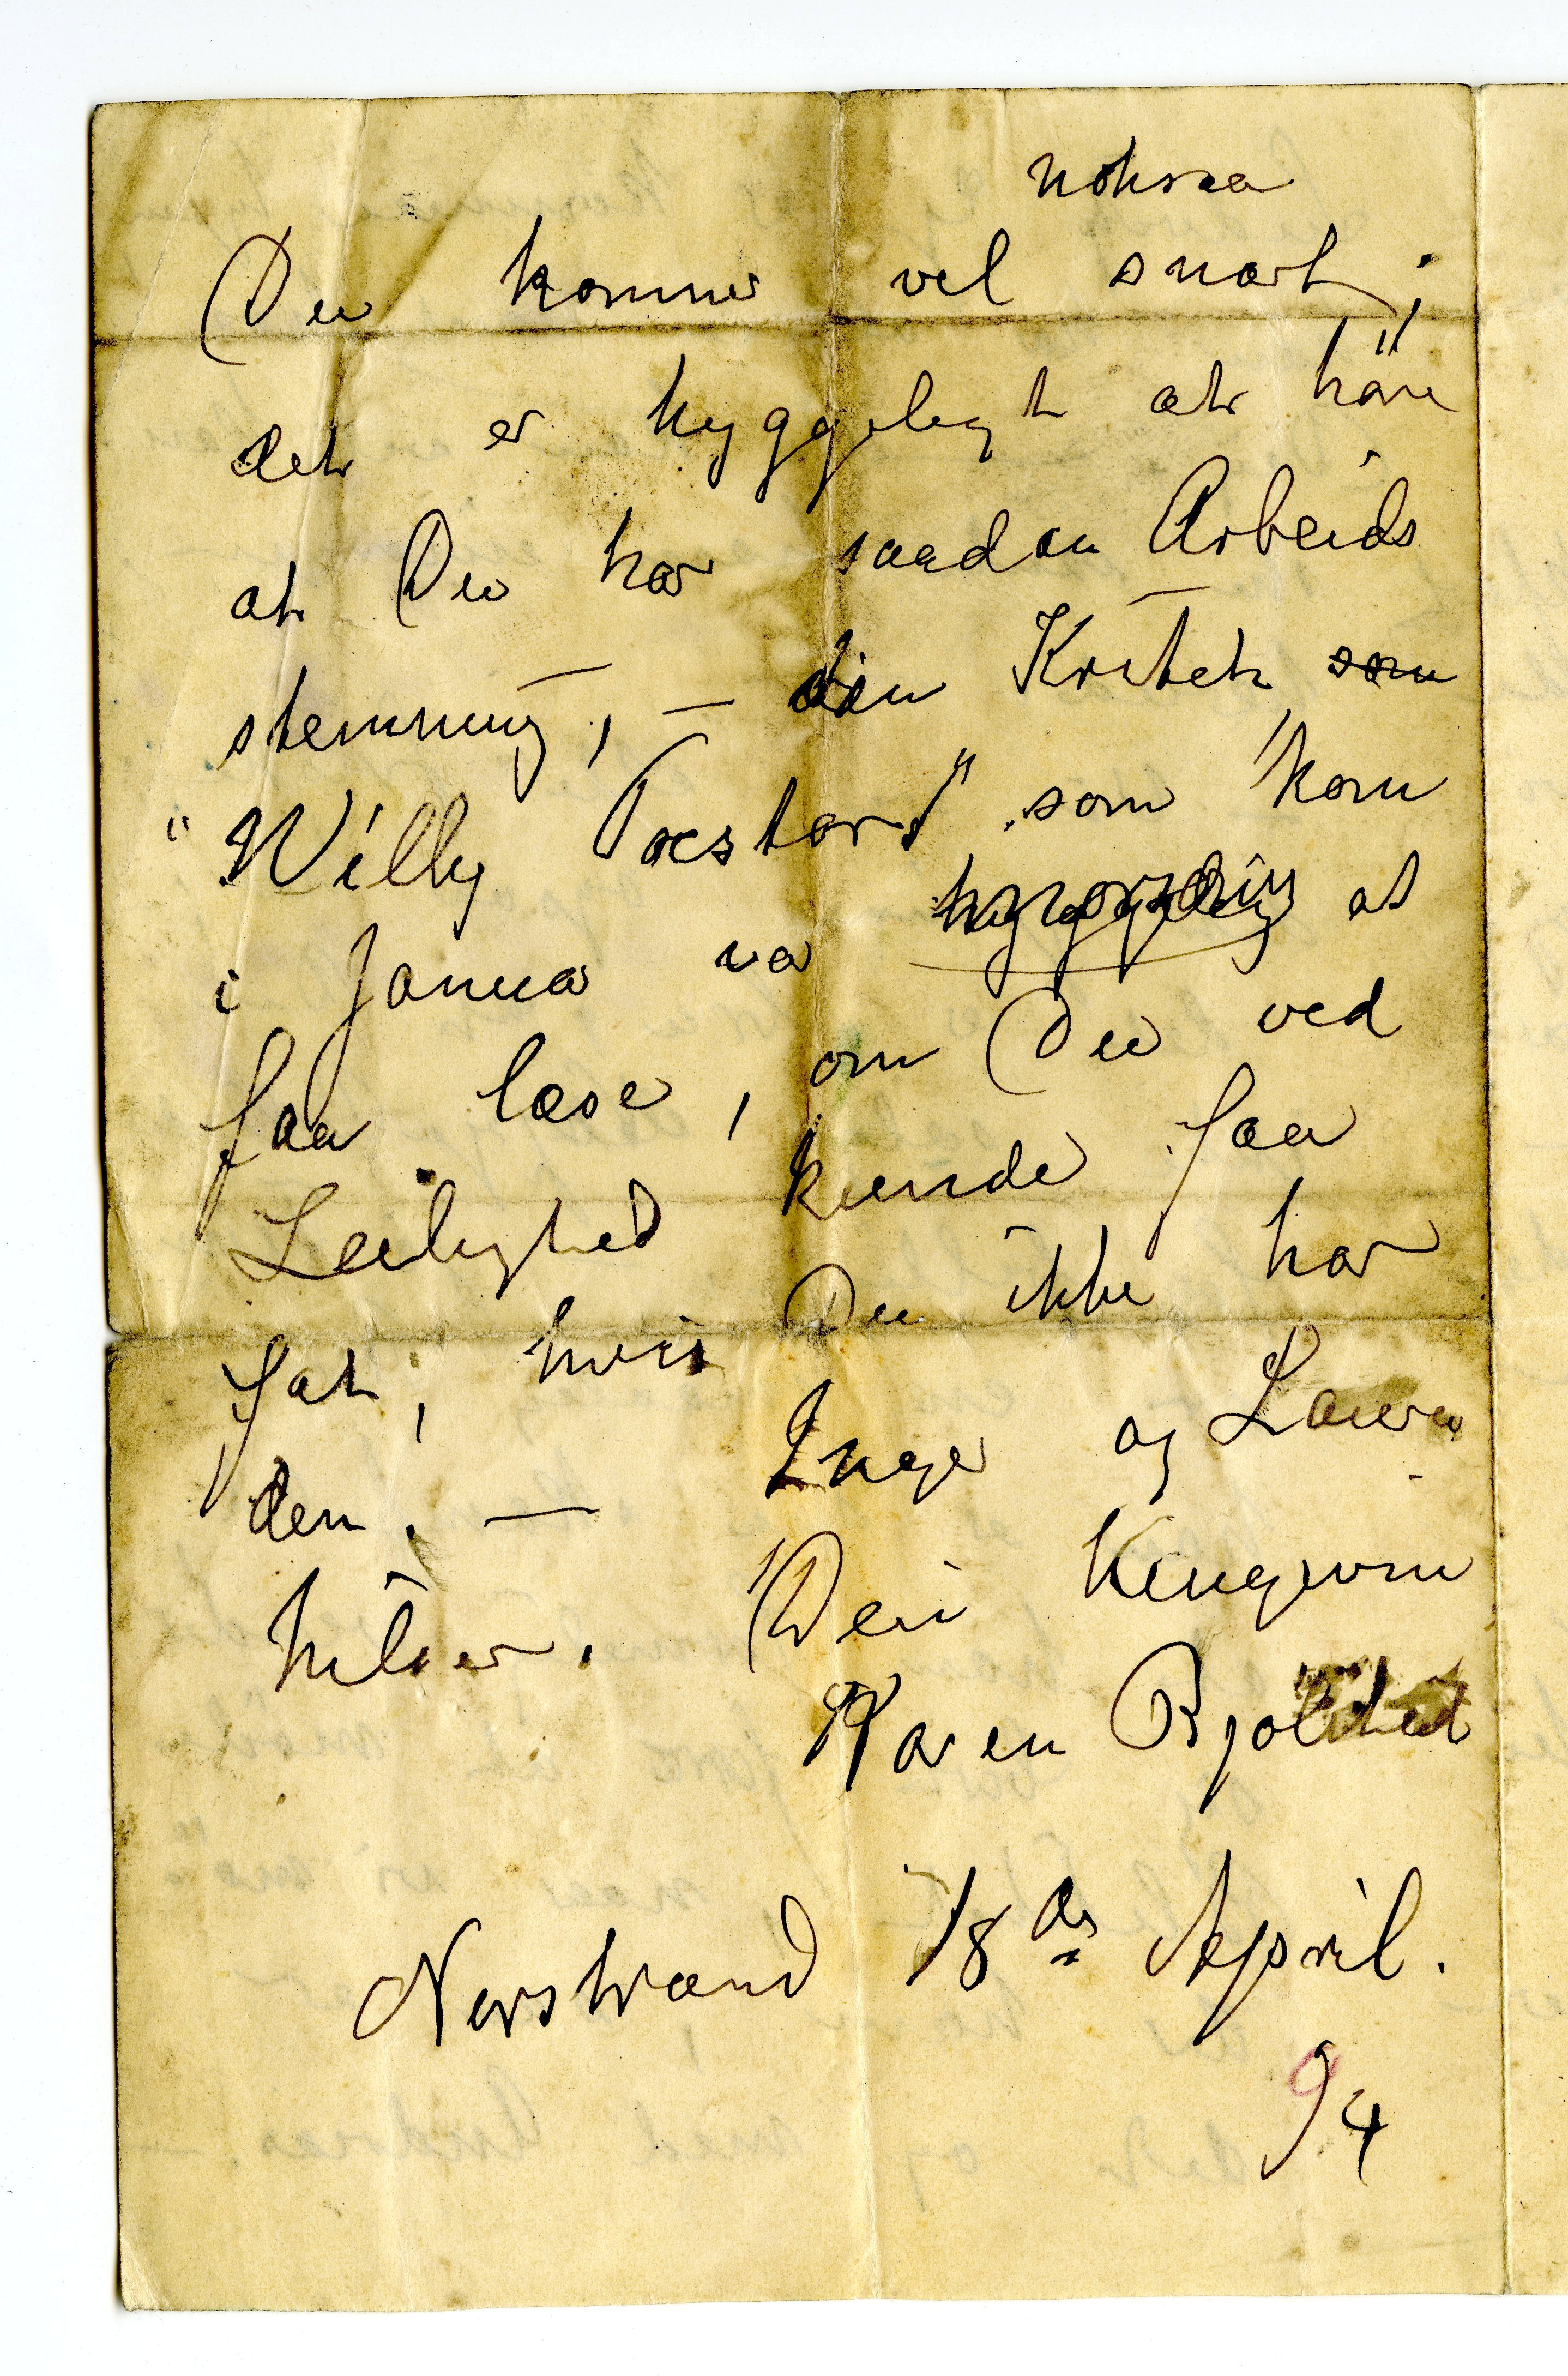 noksaa
Du kommer vel snart;
det er hyggeligt at höre
at Du har saadan Arbeids
stemning, – din Kritik som
"Willy Pastor" som kom
i Janua var at
faa læse, om Du ved
Leilighed kunde faa
fat, hvis Du ikke har
den. — Inger og Laura
hilser. Din hengivne
Karen Bjølstad
Norstrand 18de April.
94